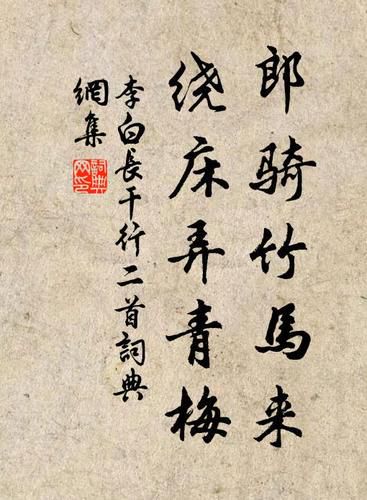 郎骑竹馬来
绕床弄青梅
李白長干行二首詞典
網集
詞典
网印